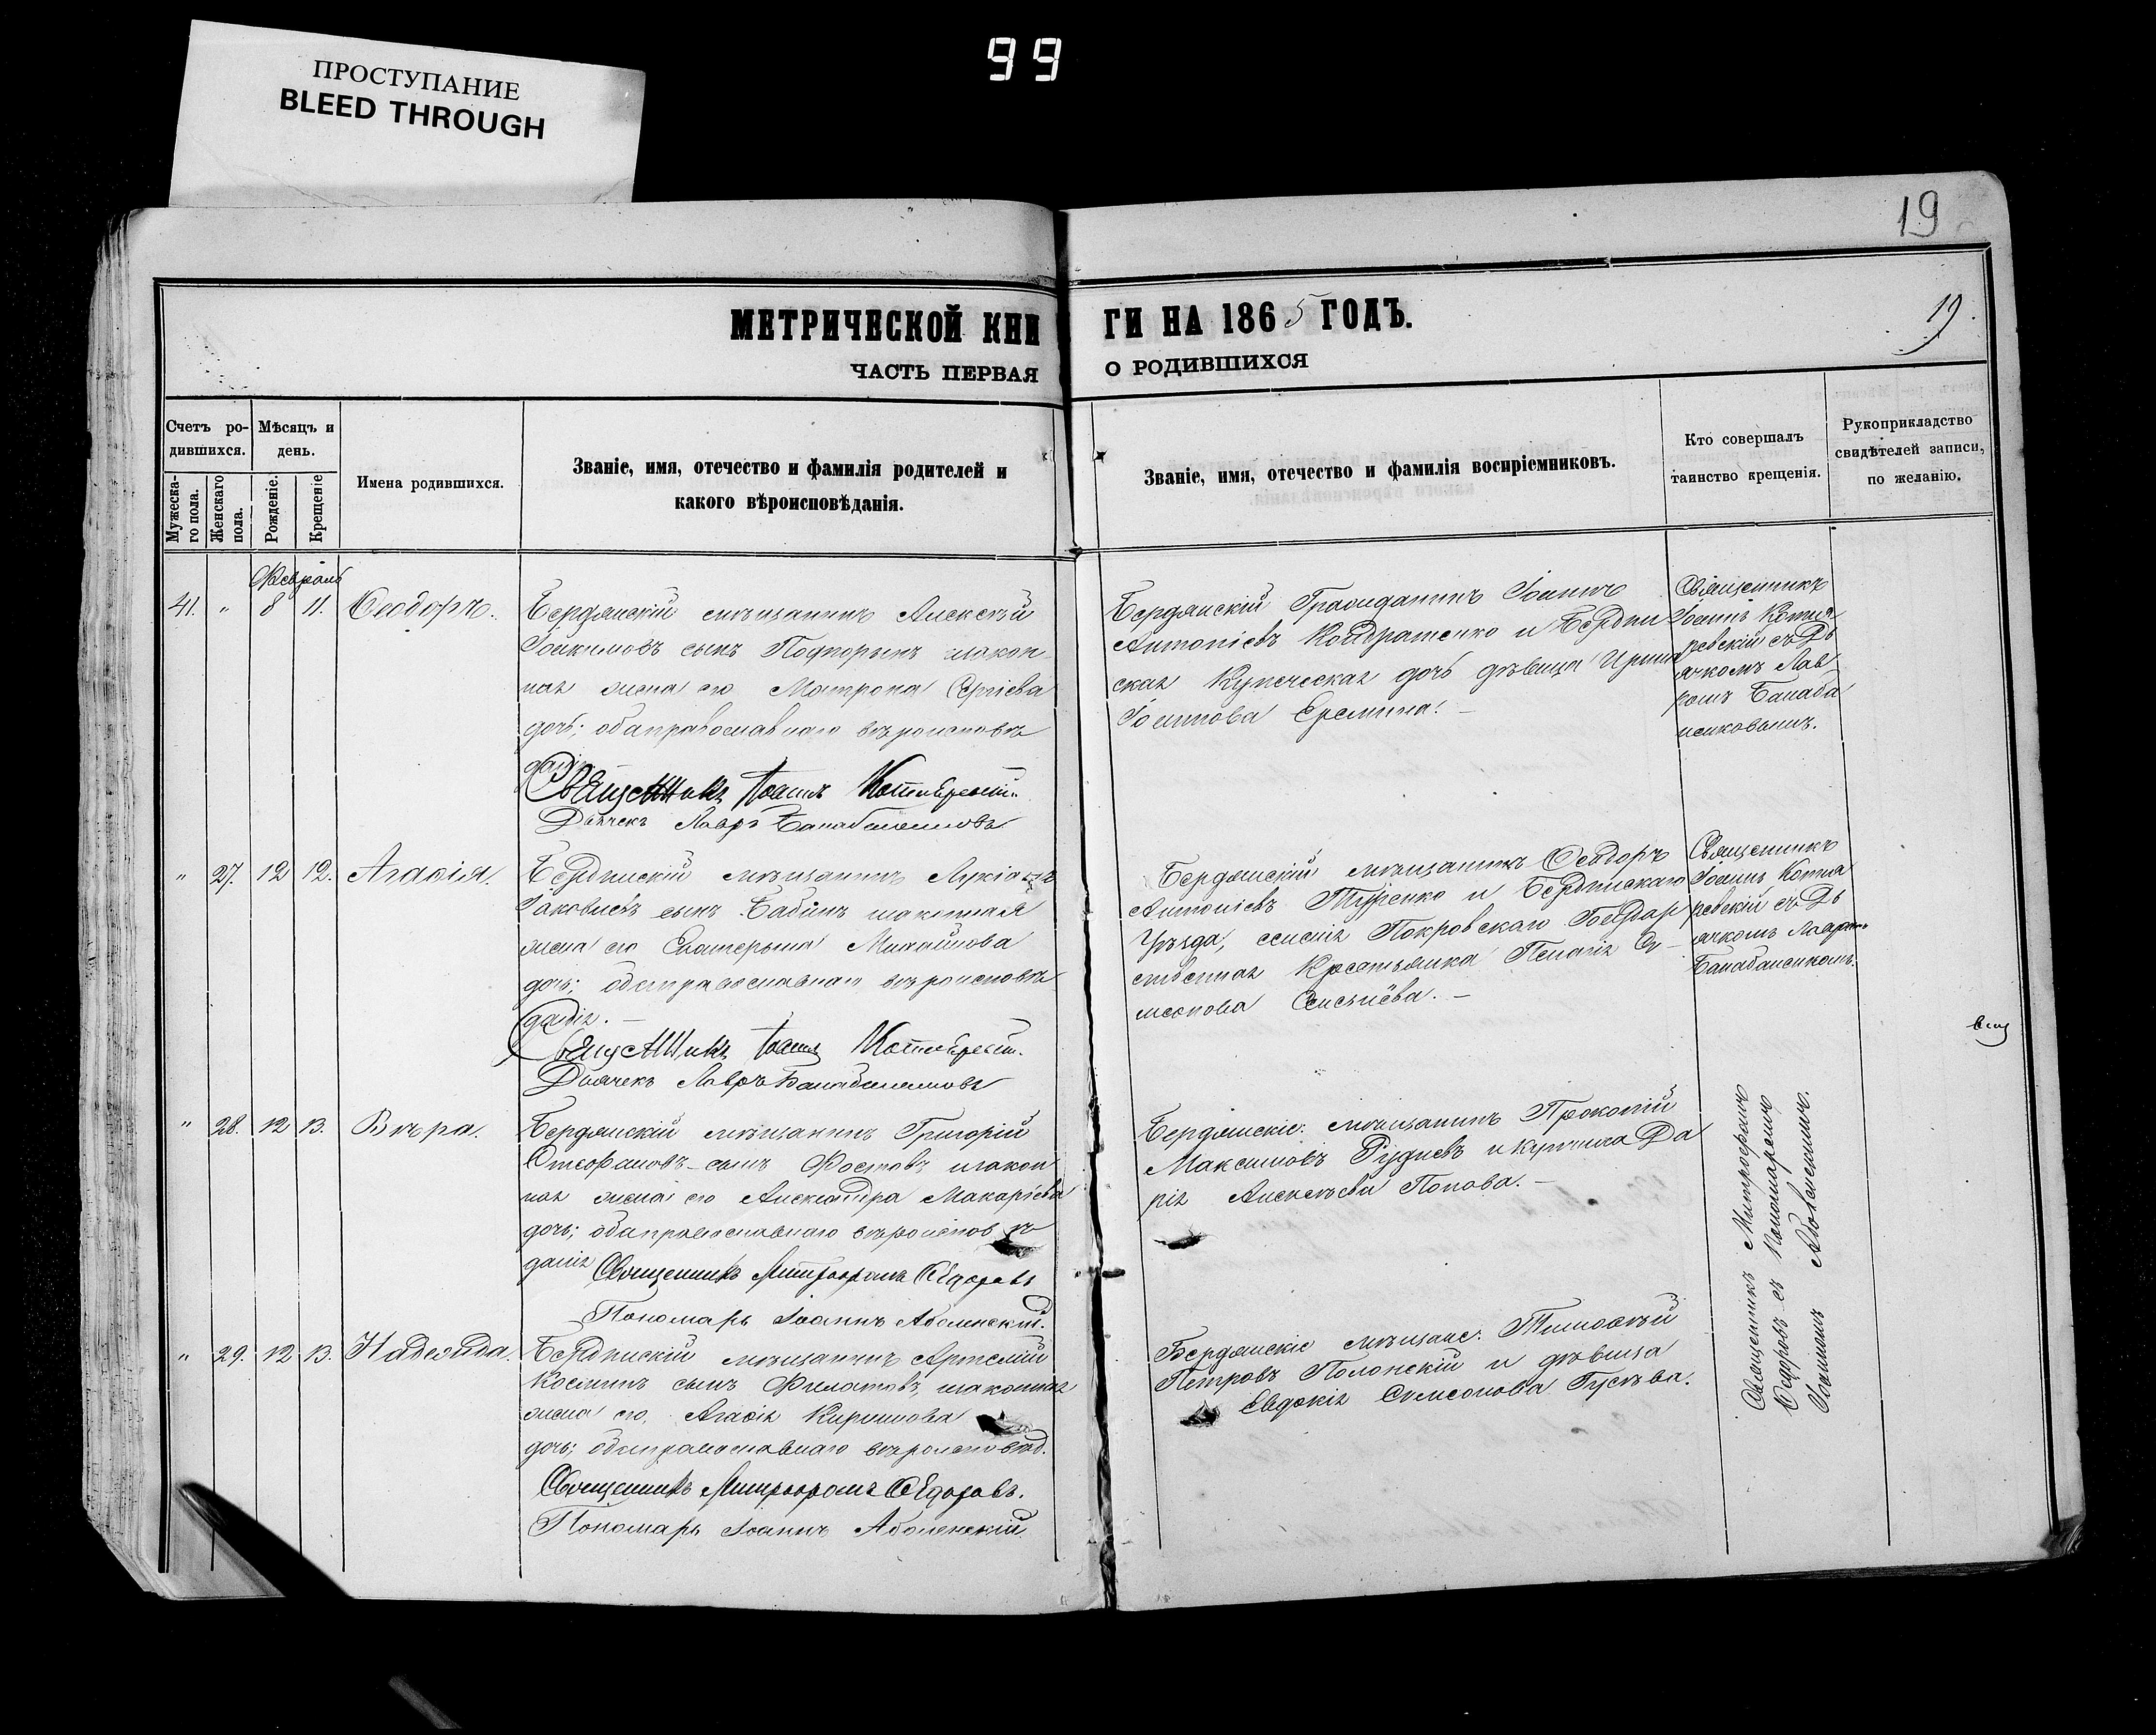 99
ПРОСТУПАНИЕ
BLEED THROUGH
19
МЕТРИЧЕСКОЙ КНИ ГИ НА 1865 ГОДЪ.
19.
ЧАСТЬ ПЕРВАЯ О РОДИВШИХСЯ
Счетъ ро-
дившихся.
Мужеска-
го пола.
Женскаго
пола.
Мѣсяцъ и
день.
Рожденіе.
Крещеніе
Имена родившихся.
Званіе, имя, отечество и фамилія родителей и
какого вѣроисповѣданія.
Званіе, имя, отечество и фамилія воспріемниковъ.
Кто совершалъ
таинство крещенія.
Рукоприкладство
свидѣтелей записи,
по желанію.
Февраль
41. " 8 11. Ѳеодоръ.
Бердянскій мѣщанинъ Алексѣй
Іоакимовъ сынъ Подпорынъ и закон
ная жена его Матрона Сергіева
дочь; оба православнаго вѣроисповѣ
данія
Священникъ Іоаннъ
Дьячекъ Лавръ
Бердянскій Гражданинъ Іоаннъ
Антоніевъ Кондратенко и Бердян
ская Купеческая дочь дѣвица Ирина
Іоаннова Еремина. —
Священникъ
Іоаннъ Котля
ревскій съ Дь
ячкомъ Лав
ромъ Балаба
" 27. 12 12. Агаѳія.
Бердянскій мѣщанинъ Лукіанъ
Іаковлевъ сынъ Бабинъ и законная
жена его Екатерына Михайлова
дочь; оба православнаго вѣроисповѣ
данія. —
Священникъ Іоаннъ
Дьячекъ Лавръ
Бердянскій мѣщанинъ Ѳеодоръ
Антоніевъ Туренко и Бердянскаго
Уѣзда, селенія Покровскаго Государ
ственная Крестьянка Пелагія Си-
меонова
Священникъ
Іоаннъ Котля
ревскій съ Дь
ячкомъ Лавром
" 28. 12 13. Вѣра.
Бердянскій мѣщанинъ Григорій
сынъ Фостовъ и закон
ная жена его Александра Макаріева
дочь; оба православнаго вѣроисповѣ
данія
Священникъ Митрофанъ Ѳедоровъ
Пономарь Іоаннъ Аболенскій.
Бердянскіе: мѣщанинъ Прокопій
Максимовъ Рудневъ и купчиха Да
рія Алексѣева Попова. —
" 29. 12 13. Надежда.
Бердянскій мѣщанинъ Артемій
Косминъ сынъ Филатовъ, и законная
жена его, Агаѳія Кирилова
дочь; оба православнаго вѣроисповѣд.
Священникъ Митрофанъ Ѳедоровъ.
Пономарь Іоаннъ Аболенскій
Бердянскіе мѣщане: Тимоѳей
Петровъ Полонскій и дѣвица
Евдокія Симеонова Гусева.
Священникъ Митрофанъ
Ѳедоровъ съ Пономаремъ
Іоанномъ Аболенскимъ.